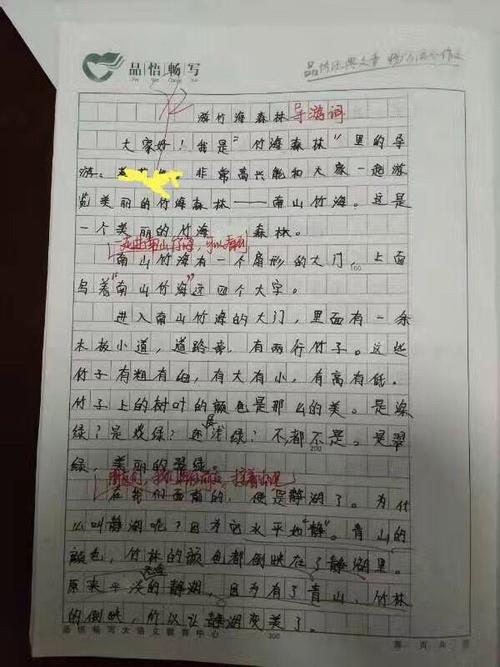 品悟畅写
游竹海森林导游词
大家好！我是“竹海森林”里的导
游。非常高兴能和大家一起游
览美丽的竹海森林——南山竹海。这是
一个美丽的竹海森林。
走进南山竹海，可以看到
南山竹海有一个扇形的大门，上面
写着“南山竹海”这四个大字。
进入南山竹海的大门，里面有一条
木板小道，道路旁，有两行竹子。这些
竹子有粗有白，有大有小，有高有低。
竹子上的树叶的颜色是那么的美。是深
绿？是浅绿？还是浅绿？不，都不是。是翠
绿，美丽的翠绿
在我们西南的，便是静湖了。为什
么叫静湖呢？因为它水平地“静”。青山的
颜色，竹林的颜色都倒映在了静湖里。
原来平淡的静湖，因为有了青山，竹林
的倒映，所以让静湖变美了。
品悟畅写大语文教育中心
300